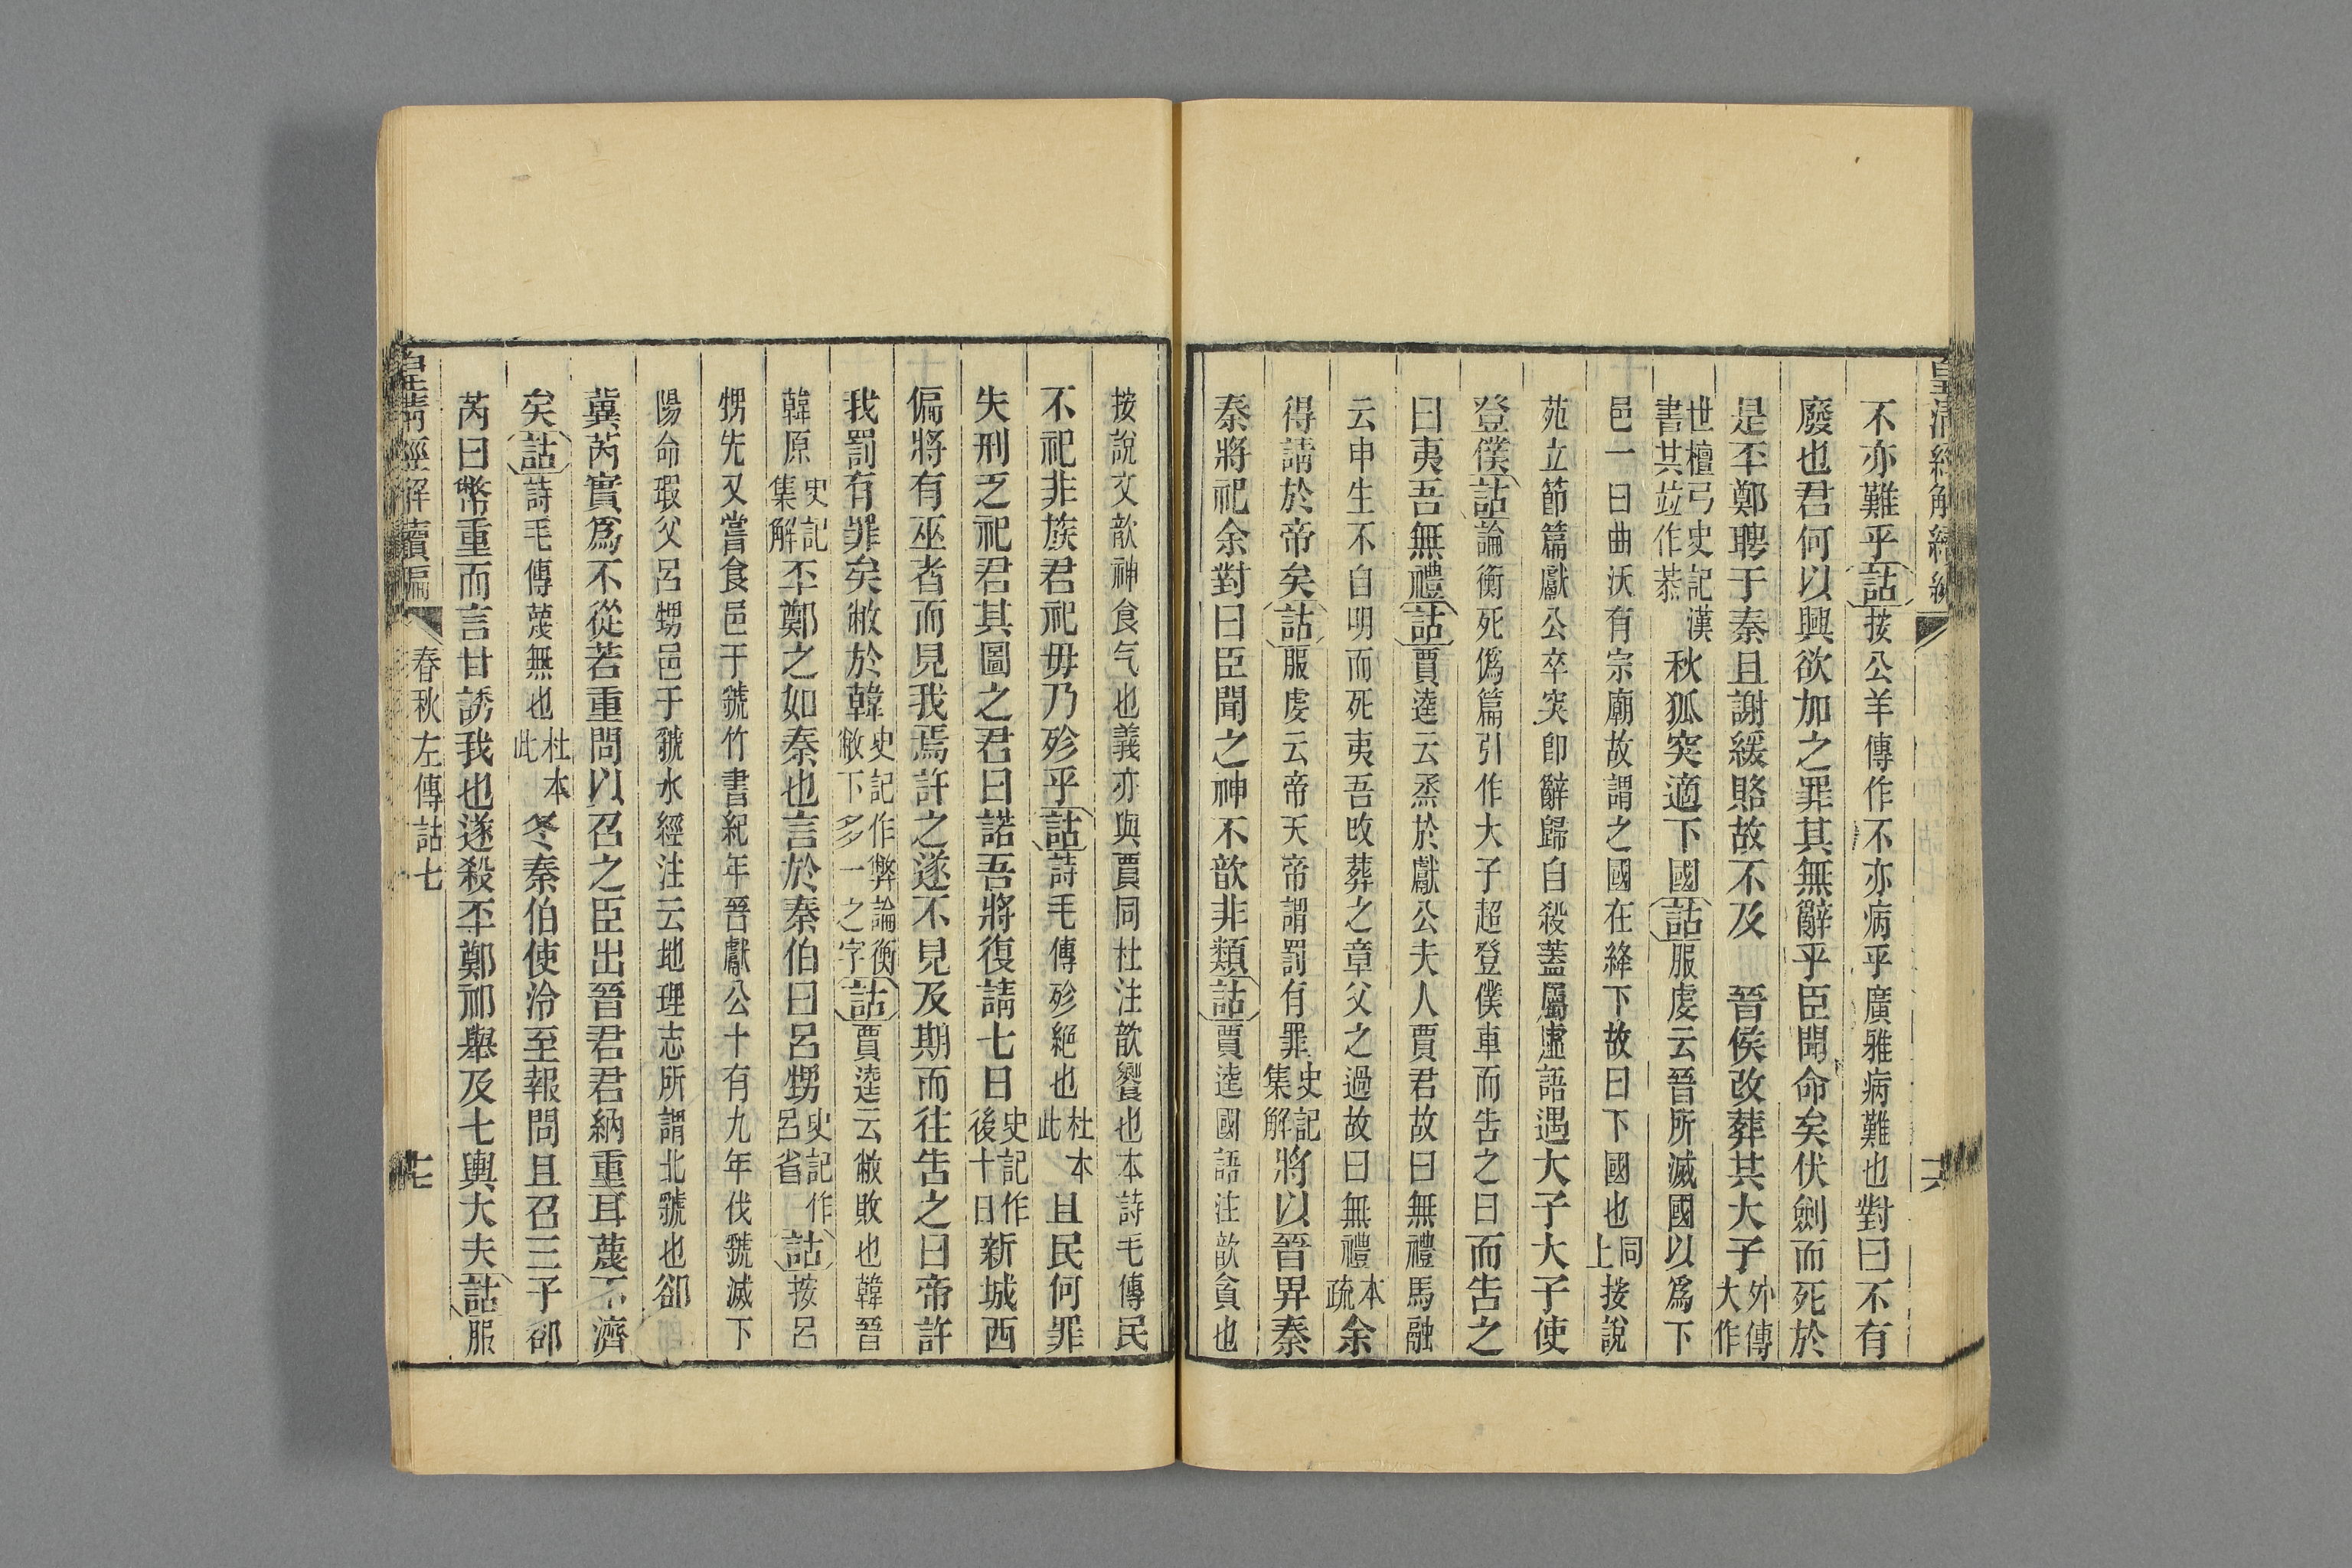 不亦難乎詁按公羊傳作不亦病乎廣雅病難也對曰不有
廢也君何以興欲加之罪其無辭乎臣聞命矣伏劍而死於
是丕鄭聘于秦且謝緩賂故不及　晉侯改葬其大子外傳大作
世檀弓史記漢書其竝作恭秋狐突適下國詁服虔云晉所滅國以爲下
邑一曰曲沃有宗廟故謂之國在絳下故曰下國也同上按說
苑立節篇獻公卒突卽辭歸自殺蓋屬虛語遇大子大子使
登僕詁論衡死僞篇引作大子趨登僕車而告之曰而告之
曰夷吾無禮詁賈逵云烝於獻公夫人賈君故曰無禮馬融
云申生不自明而死夷吾改葬之章父之過故曰無禮本疏余
得請於帝矣詁服虔云帝天帝謂罰有罪史記集解將以晉畀秦
秦將祀余對曰臣聞之神不歆非類詁賈逵國語注歆貪也
按說文歆神食气也義亦與賈同杜注歆饗也本詩毛傳民
不祀非族君祀毋乃殄乎詁詩毛傳殄絕也杜本此且民何罪
失刑乏祀君其圖之君曰諾吾將復請七日史記作後十日新城西
偏將有巫者而見我焉許之遂不見及期而往告之曰帝許
我罰有罪矣敝於韓史記作弊論衡敝下多一之字詁賈逵云敝敗也韓晉
韓原史記集解丕鄭之如秦也言於秦伯曰呂甥史記作呂省詁按呂
甥先又嘗食邑于虢竹書紀年晉獻公十有九年伐虢滅下
陽命瑕父呂甥邑于虢水經注云地理志所謂北虢也郤
冀芮實爲不從若重問以召之臣出晉君君納重耳蔑不濟
矣詁詩毛傳蔑無也杜本此冬秦伯使泠至報問且召三子郤
芮曰幣重而言甘誘我也遂殺丕鄭祁舉及七輿大夫詁服
皇清經解續編　春秋左傳詁七　七